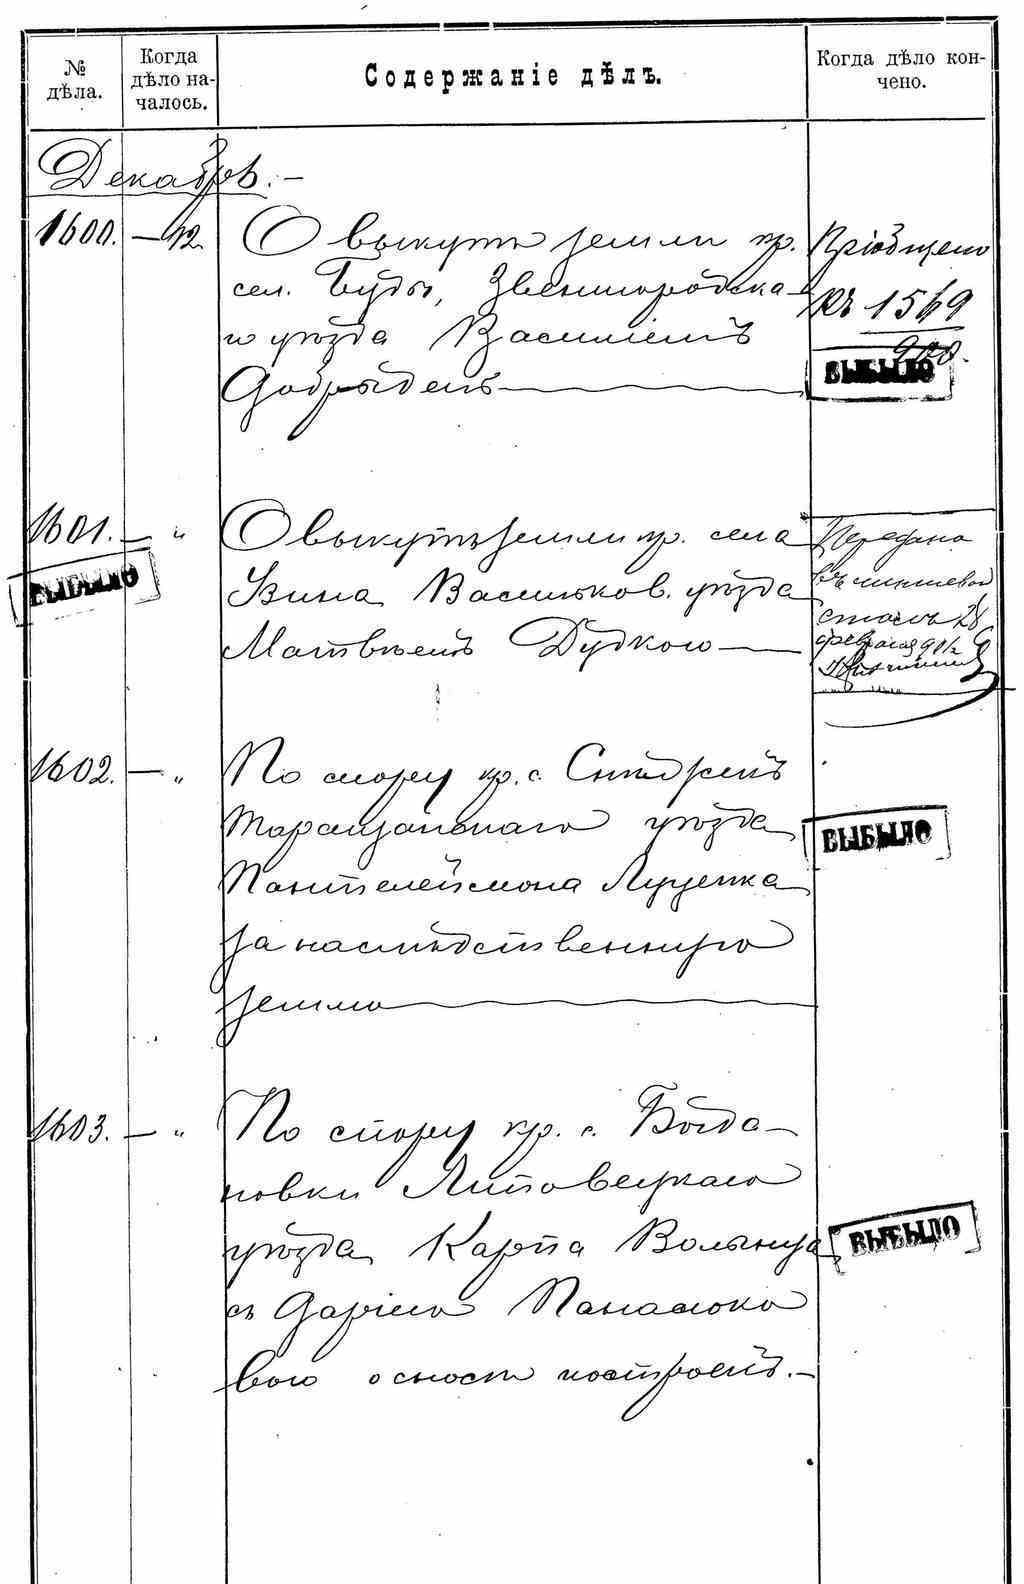 № дѣла.
Когда дѣло началось.
Содержаніе дѣлъ.
Когда дѣло кончено.
Декабрь.—
1600. — 12.
О выкупѣ земли кр.
сел. Буды, Звенигородска-
го уѣзда Василіемъ
Добрыденъ
Пріобщено
къ 1569
900.
ВЫБЫЛО
1601. — „
О выкупѣ земли кр. села
Винa Васильков. уѣзда
Матвѣемъ Дудкою
Передано
въ
столъ 28
февраля
ВЫБЫЛО
1602. — „
По спору кр. с.
Таращанскаго уѣзда
Пантелеймона Луценка
за наслѣдственную
землю
ВЫБЫЛО
1603. — „
По спору кр. с. Богда-
новки Липовецкаго
уѣзда Карпа Волынца
съ Даріею Панасюко
вою о сносѣ построекъ.—
ВЫБЫЛО